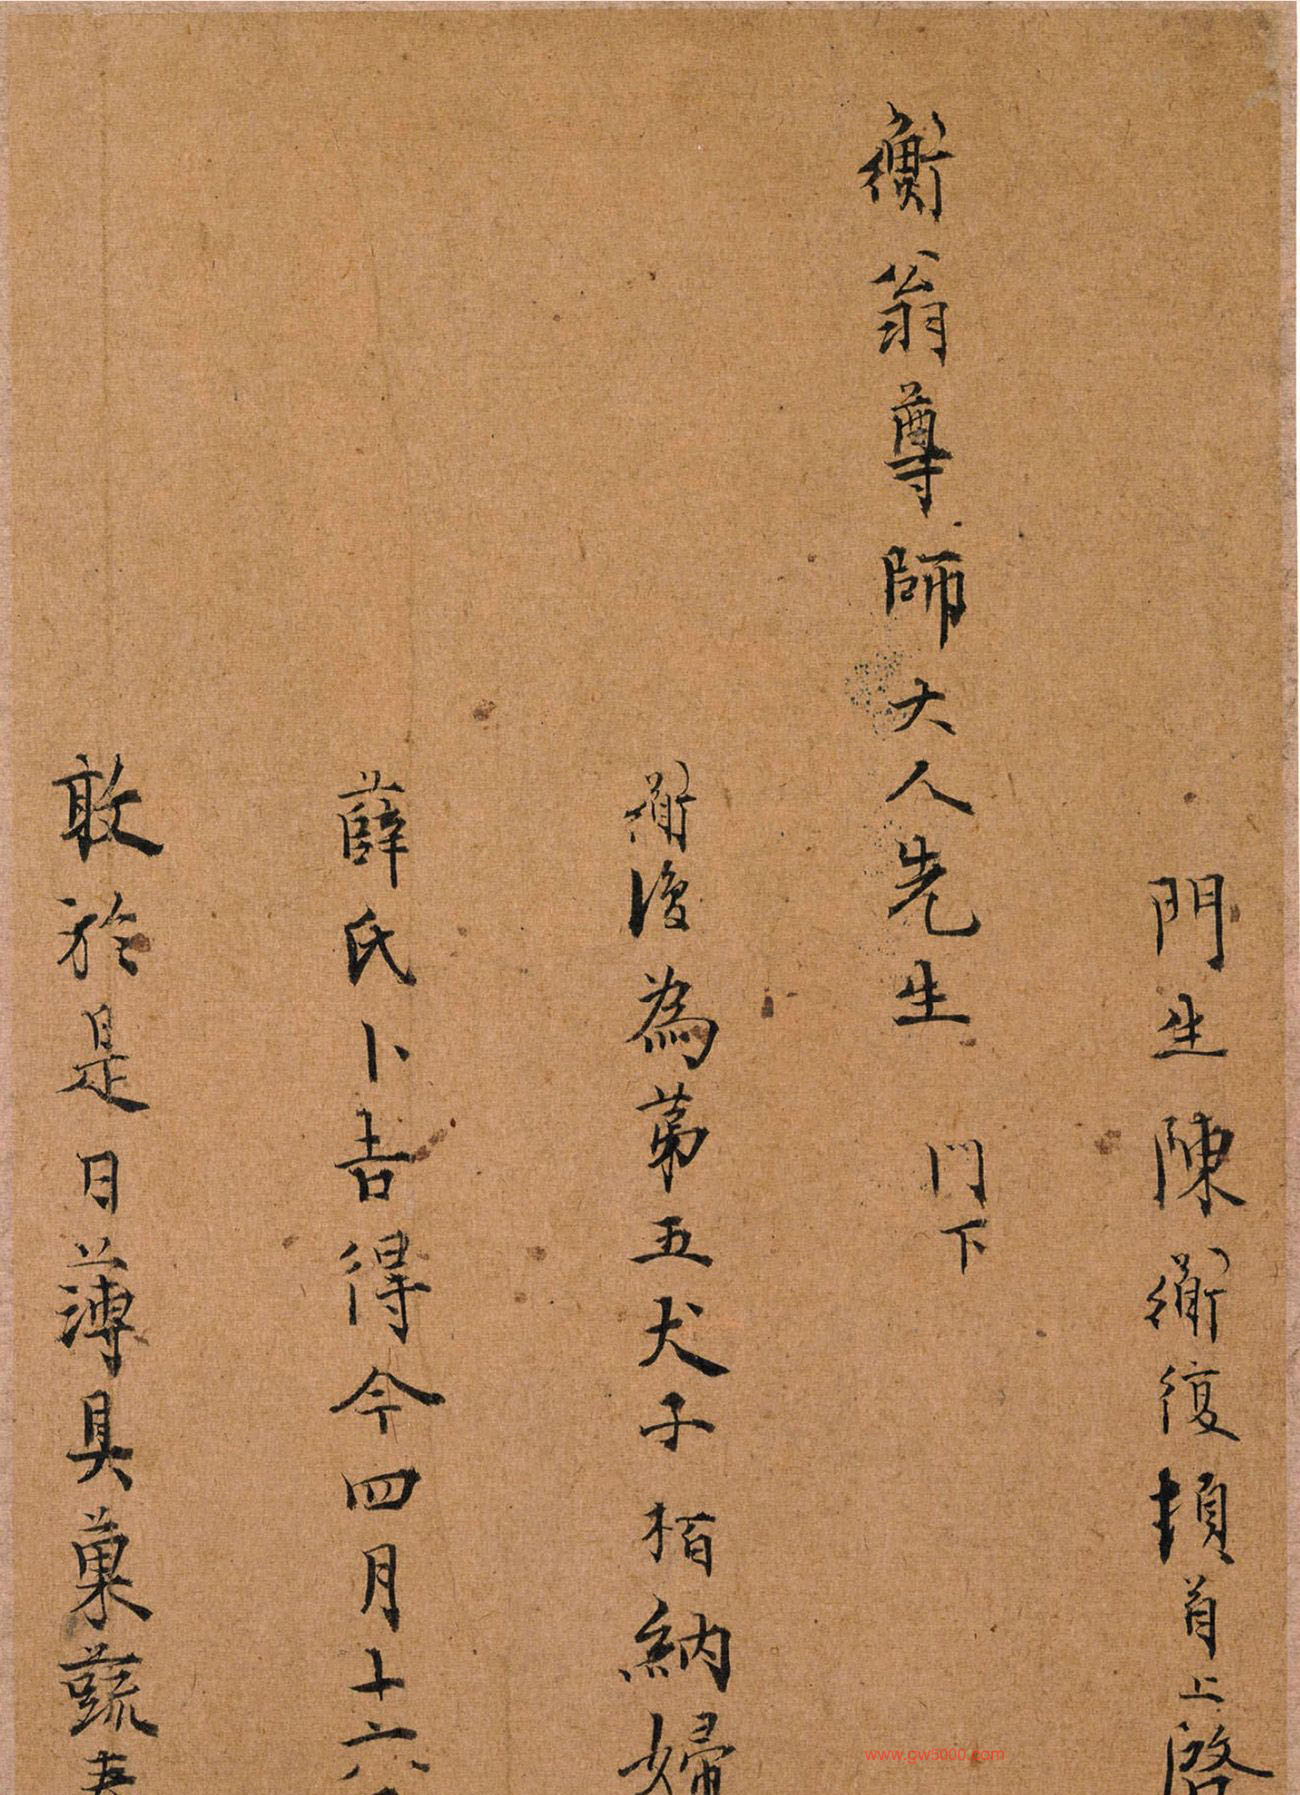 門生陳衟復頓首上啓
衡翁尊師大人先生 門下
衟復為苐五犬子栢納婦
薛氏卜吉得今四月十六
敢於是日薄具菓蔬
www.gw5000.com